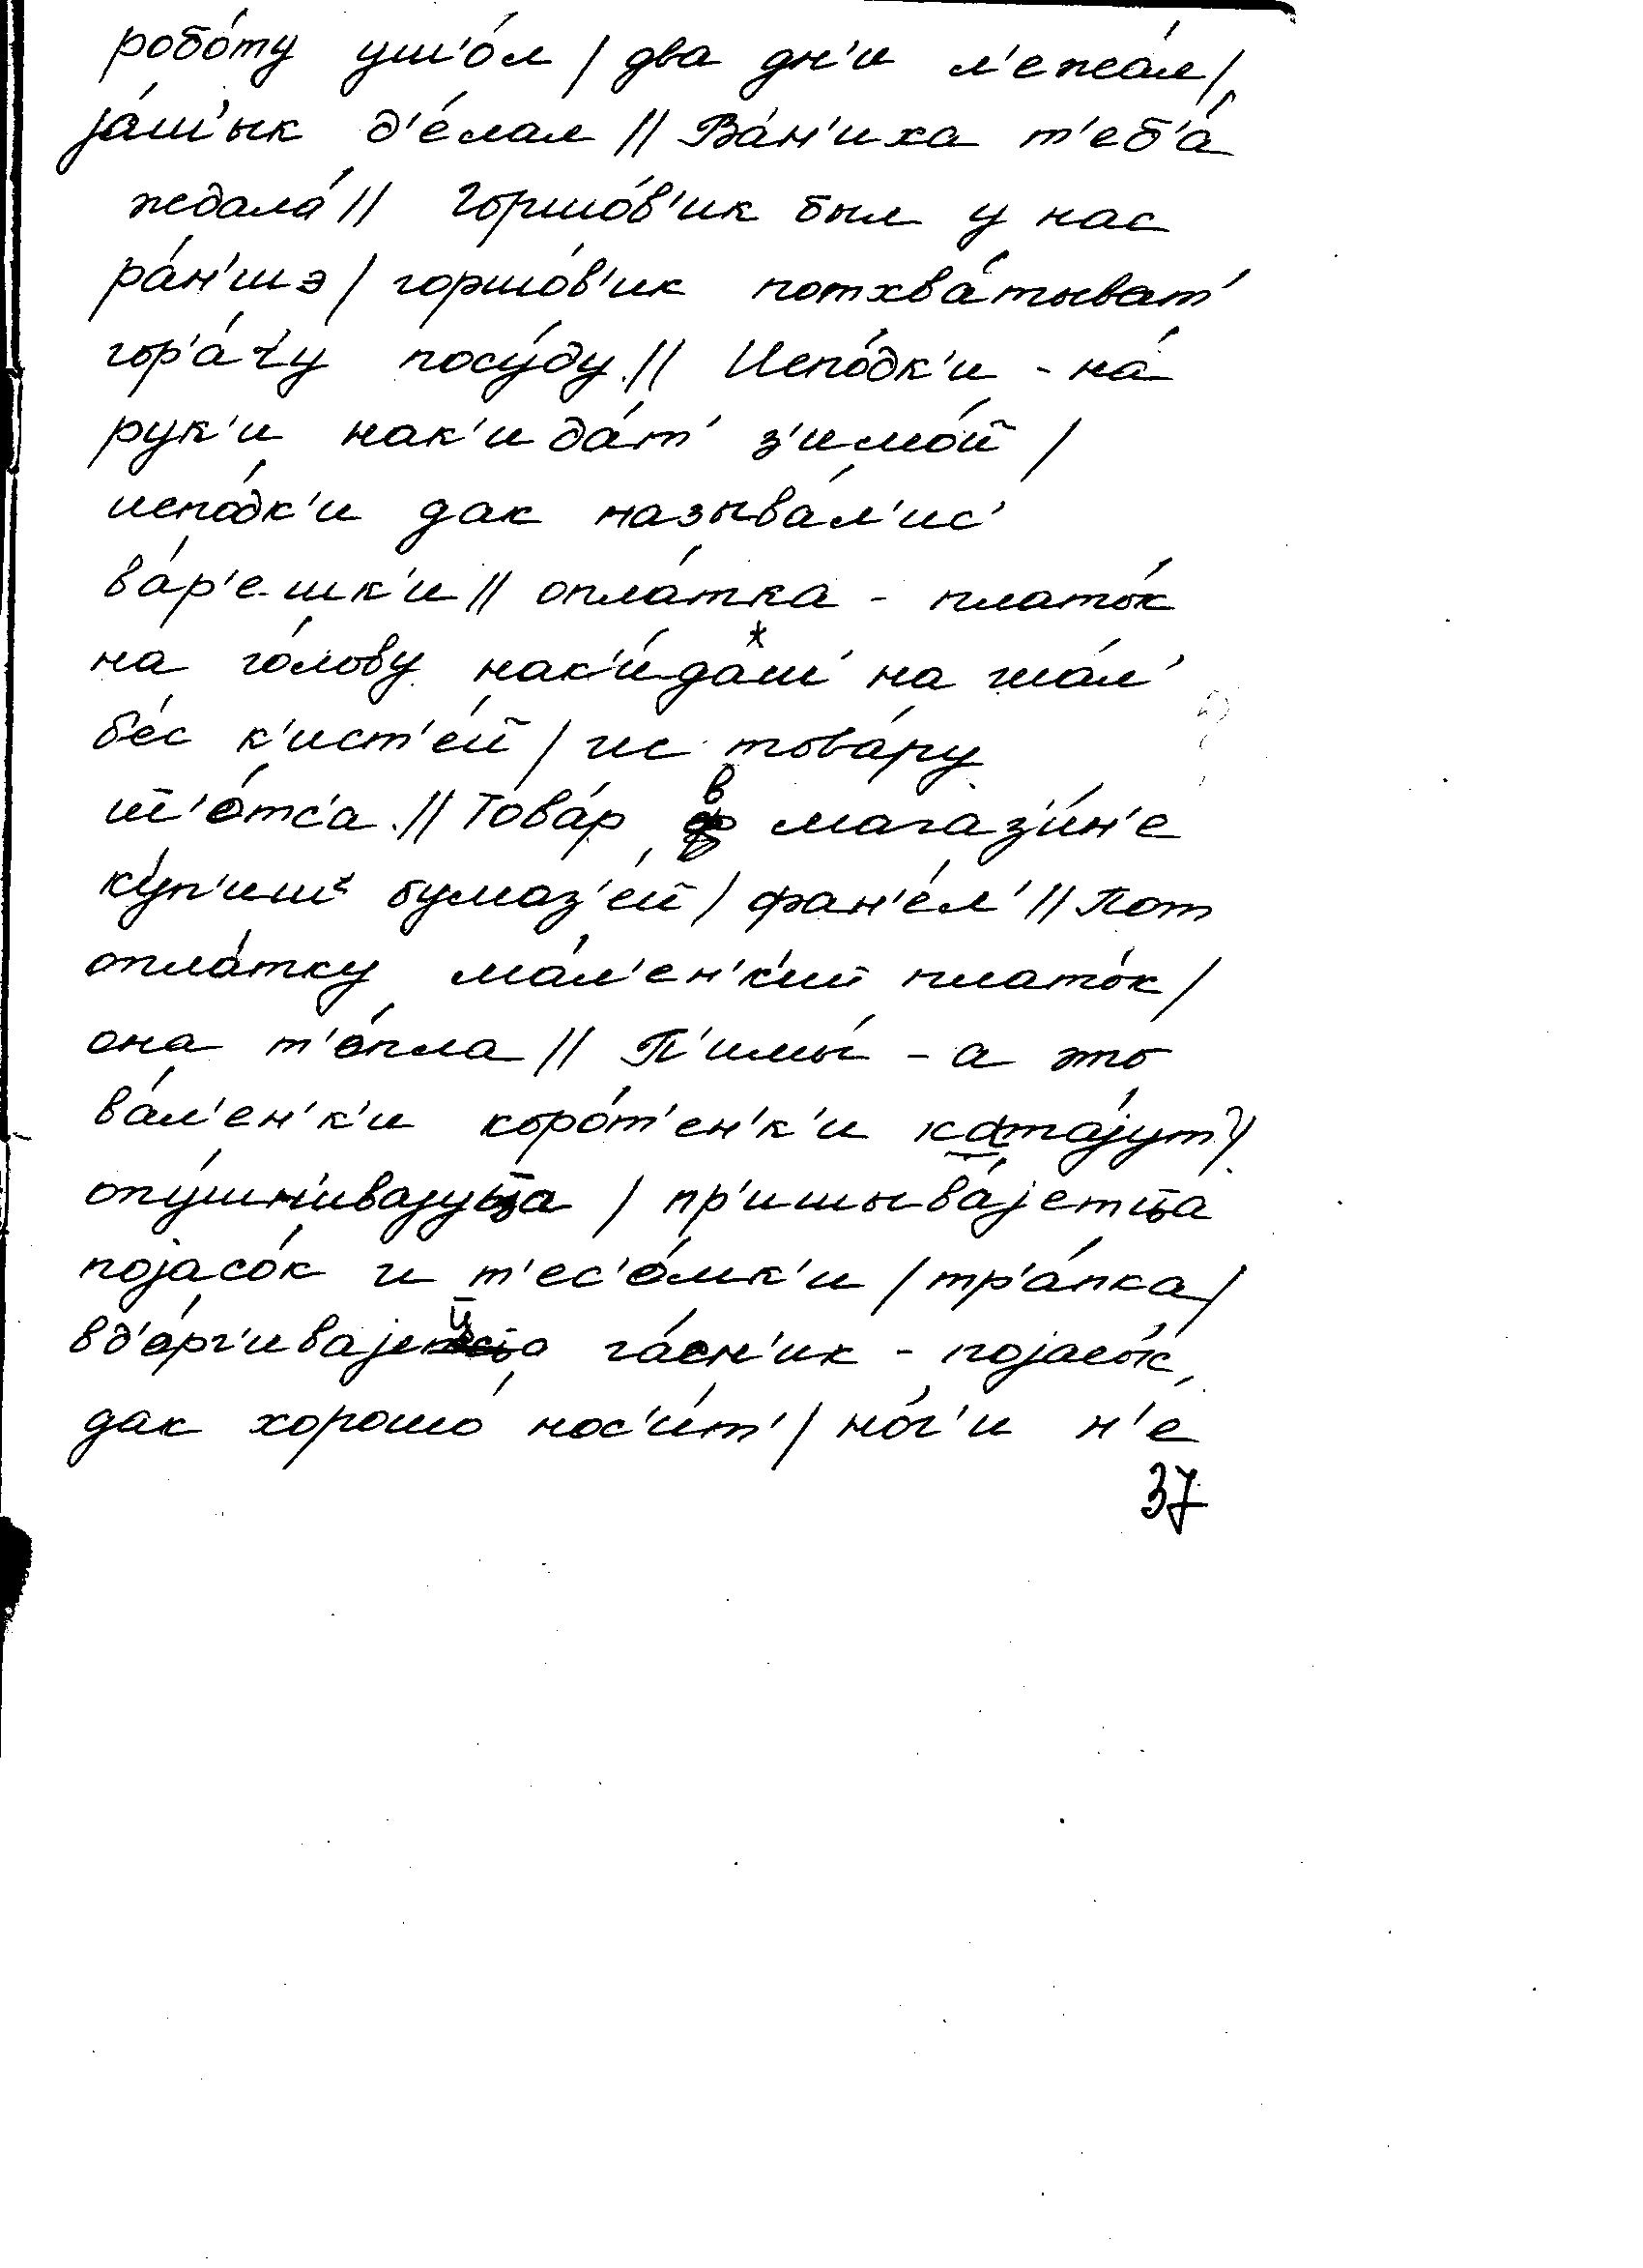 робо́ту уш'о́л / два дн'и л'ежа́л /
jа́ш'ык д'е́лал // Ва́н'иха т'еб'а́
ждала́ // Горшо́в'ик был у нас
ра́н'шэ / горшо́в'ик потхва́тыват'
гор'а́чу посу́ду // Испо́дк'и - на́
рук'и нак'ида́т' з'имо́й /
испо́дк'и дак называ́л'ис'
ва́р'ешк'и // опла́тка - плато́к
на го́лову нак'и́даш' на шал'
бес к'ист'е́й / ис това́ру
ш'о́тс'а // Това́р в магаз'и́н'е
ку́п'иш' бумаз'е́й / фан'е́л' // Пот
опла́тку ма́л'ен'к'ий плато́к /
она т'о́пла // П'имы́ - а это
ва́л'ен'к'и коро́т'ен'к'и ката́jут /
опу́шн'иваjуца / пр'ишыва́jетца
поjасо́к и т'ес'о́мк'и / тр'а́пка /
вд'о́рг'иваjеца га́сн'ик - поjасо́к,
дак хорошо́ нос'и́т' / но́г'и н'е
37